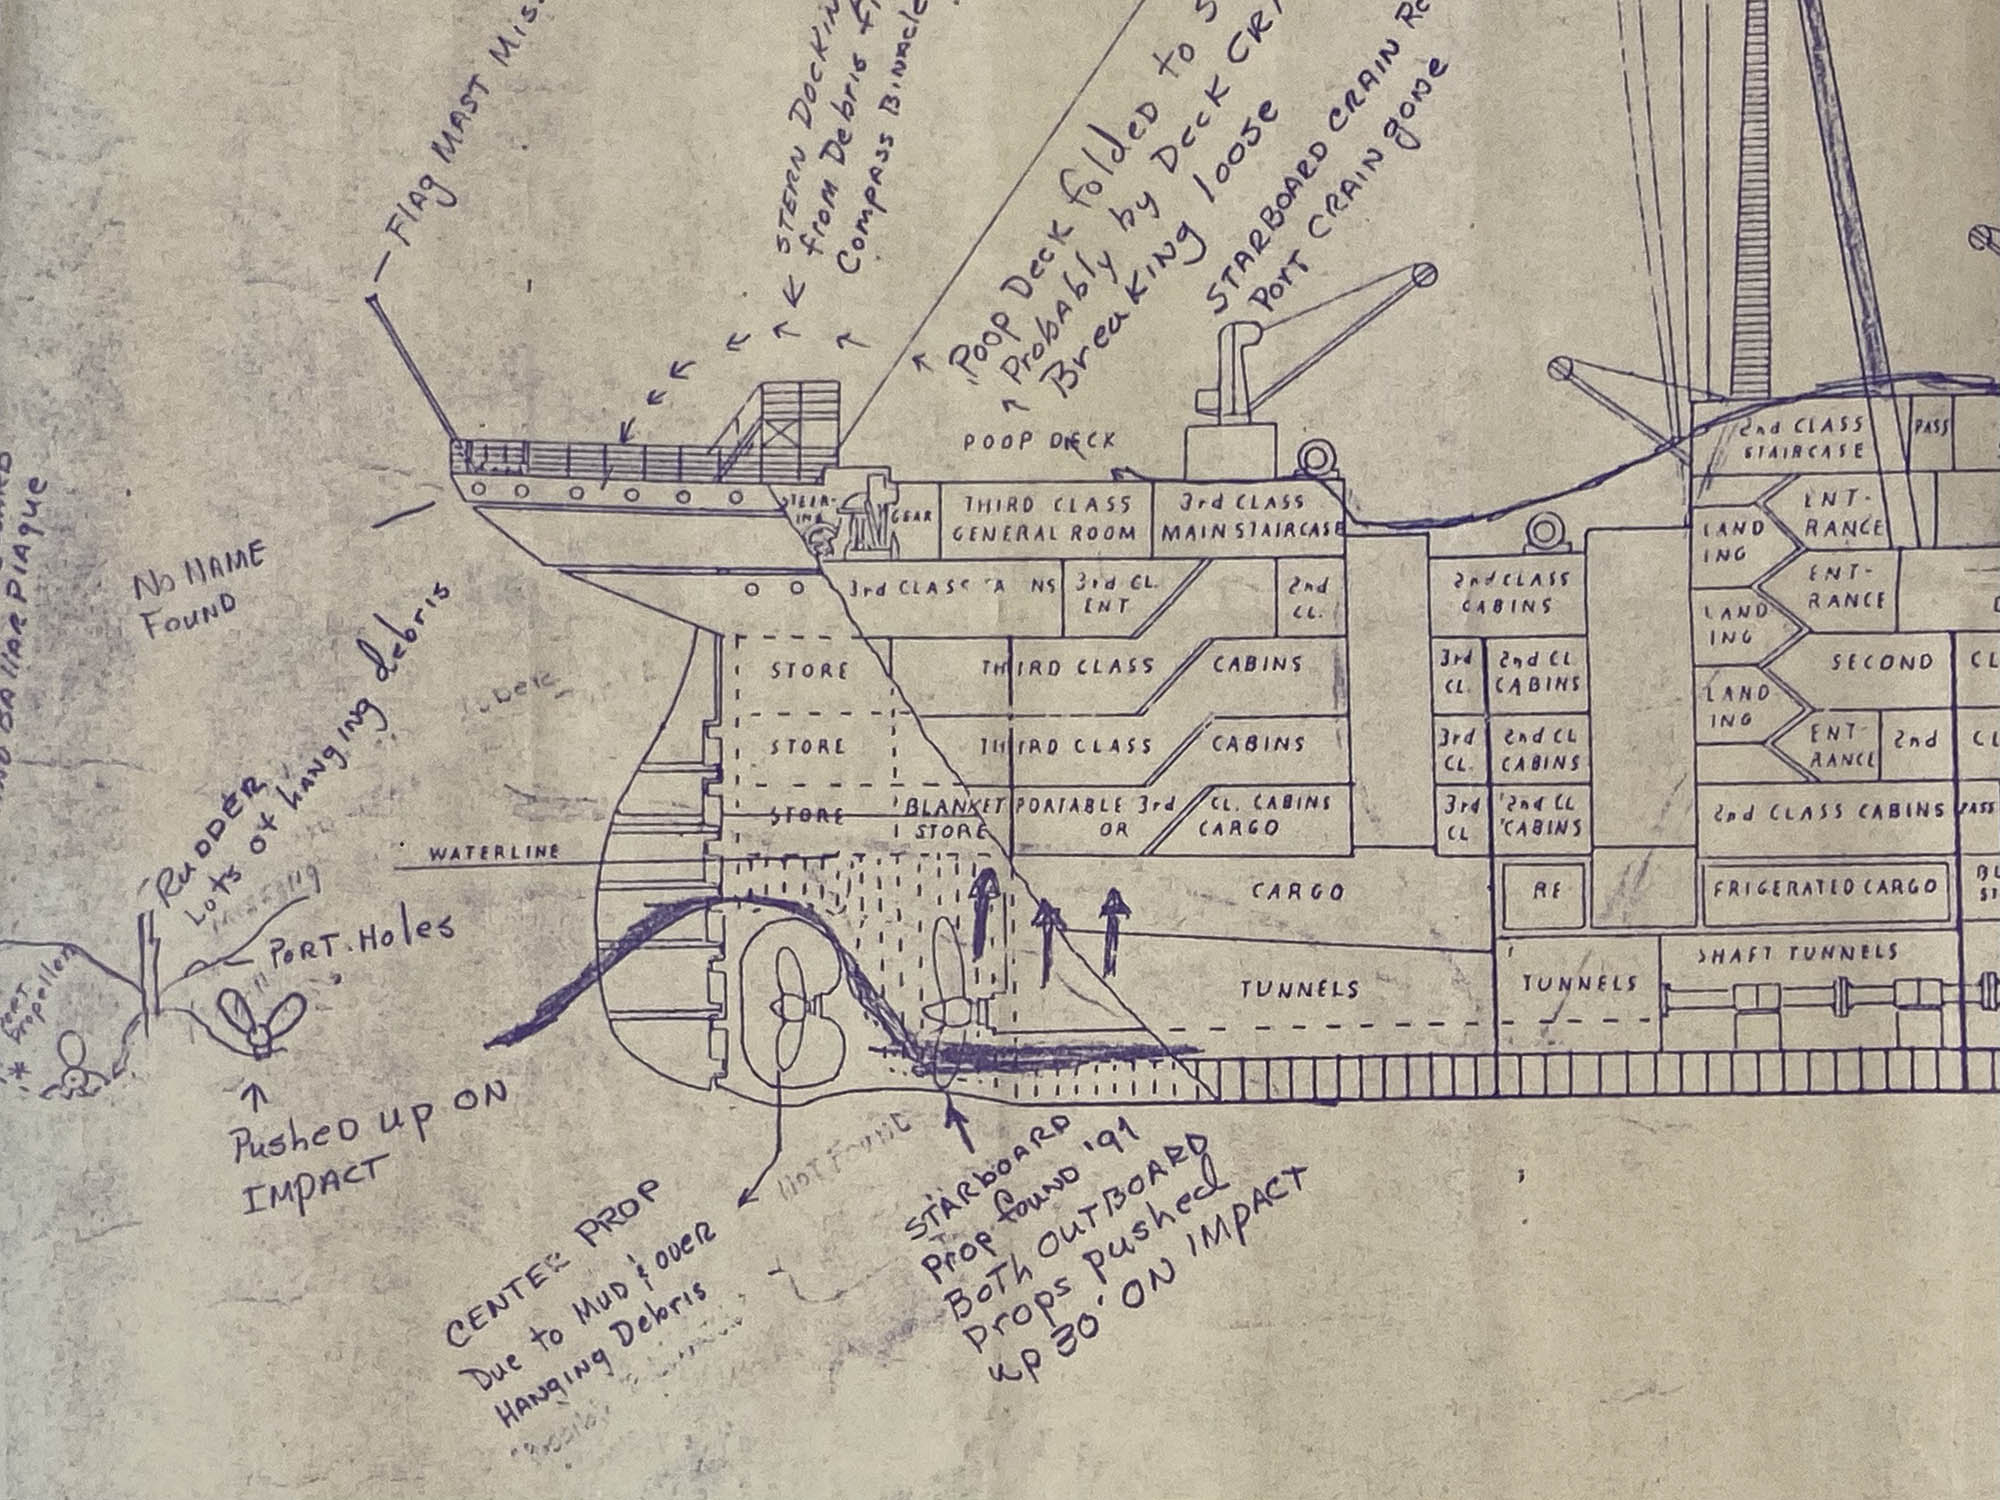 Flag MAST
STERN DOCKIN
from Debris
Compass Binnacle
Poop Deck folded to
Probably by Deck
Breaking loose
STARBOARD CRAIN
PORT CRAIN gone
POOP DECK
No NAME
Found
RUDDER
Lots of hanging debris
PORT.Holes
Propeller
Pushed up on
IMPACT
WATERLINE
STEER-
ING
GEAR
THIRD CLASS
GENERAL ROOM
3rd CLASS
MAIN STAIRCASE
2nd CLASS
STAIRCASE
PASS
3rd CLASS
3rd CL.
ENT.
2nd
CL.
2nd CLASS
CABINS
LAND
ING
ENT-
RANCE
LAND
ING
ENT-
RANCE
LAND
ING
SECOND
ENT-
RANCE
2nd
CL
CL
STORE
THIRD CLASS
CABINS
3rd
CL.
2nd CL
CABINS
STORE
THIRD CLASS
CABINS
3rd
CL.
2nd CL
CABINS
STORE
BLANKET
STORE
PORTABLE 3rd
OR
CL. CABINS
CARGO
3rd
CL
2nd CL
CABINS
2nd CLASS CABINS
PASS
CARGO
RE
FRIGERATED CARGO
TUNNELS
TUNNELS
SHAFT TUNNELS
NOT FOUND
CENTER PROP
Due to MUD & over
HANGING Debris
STARBOARD
Prop found '91
Both OUTBOARD
props pushed
up 30' ON IMPACT